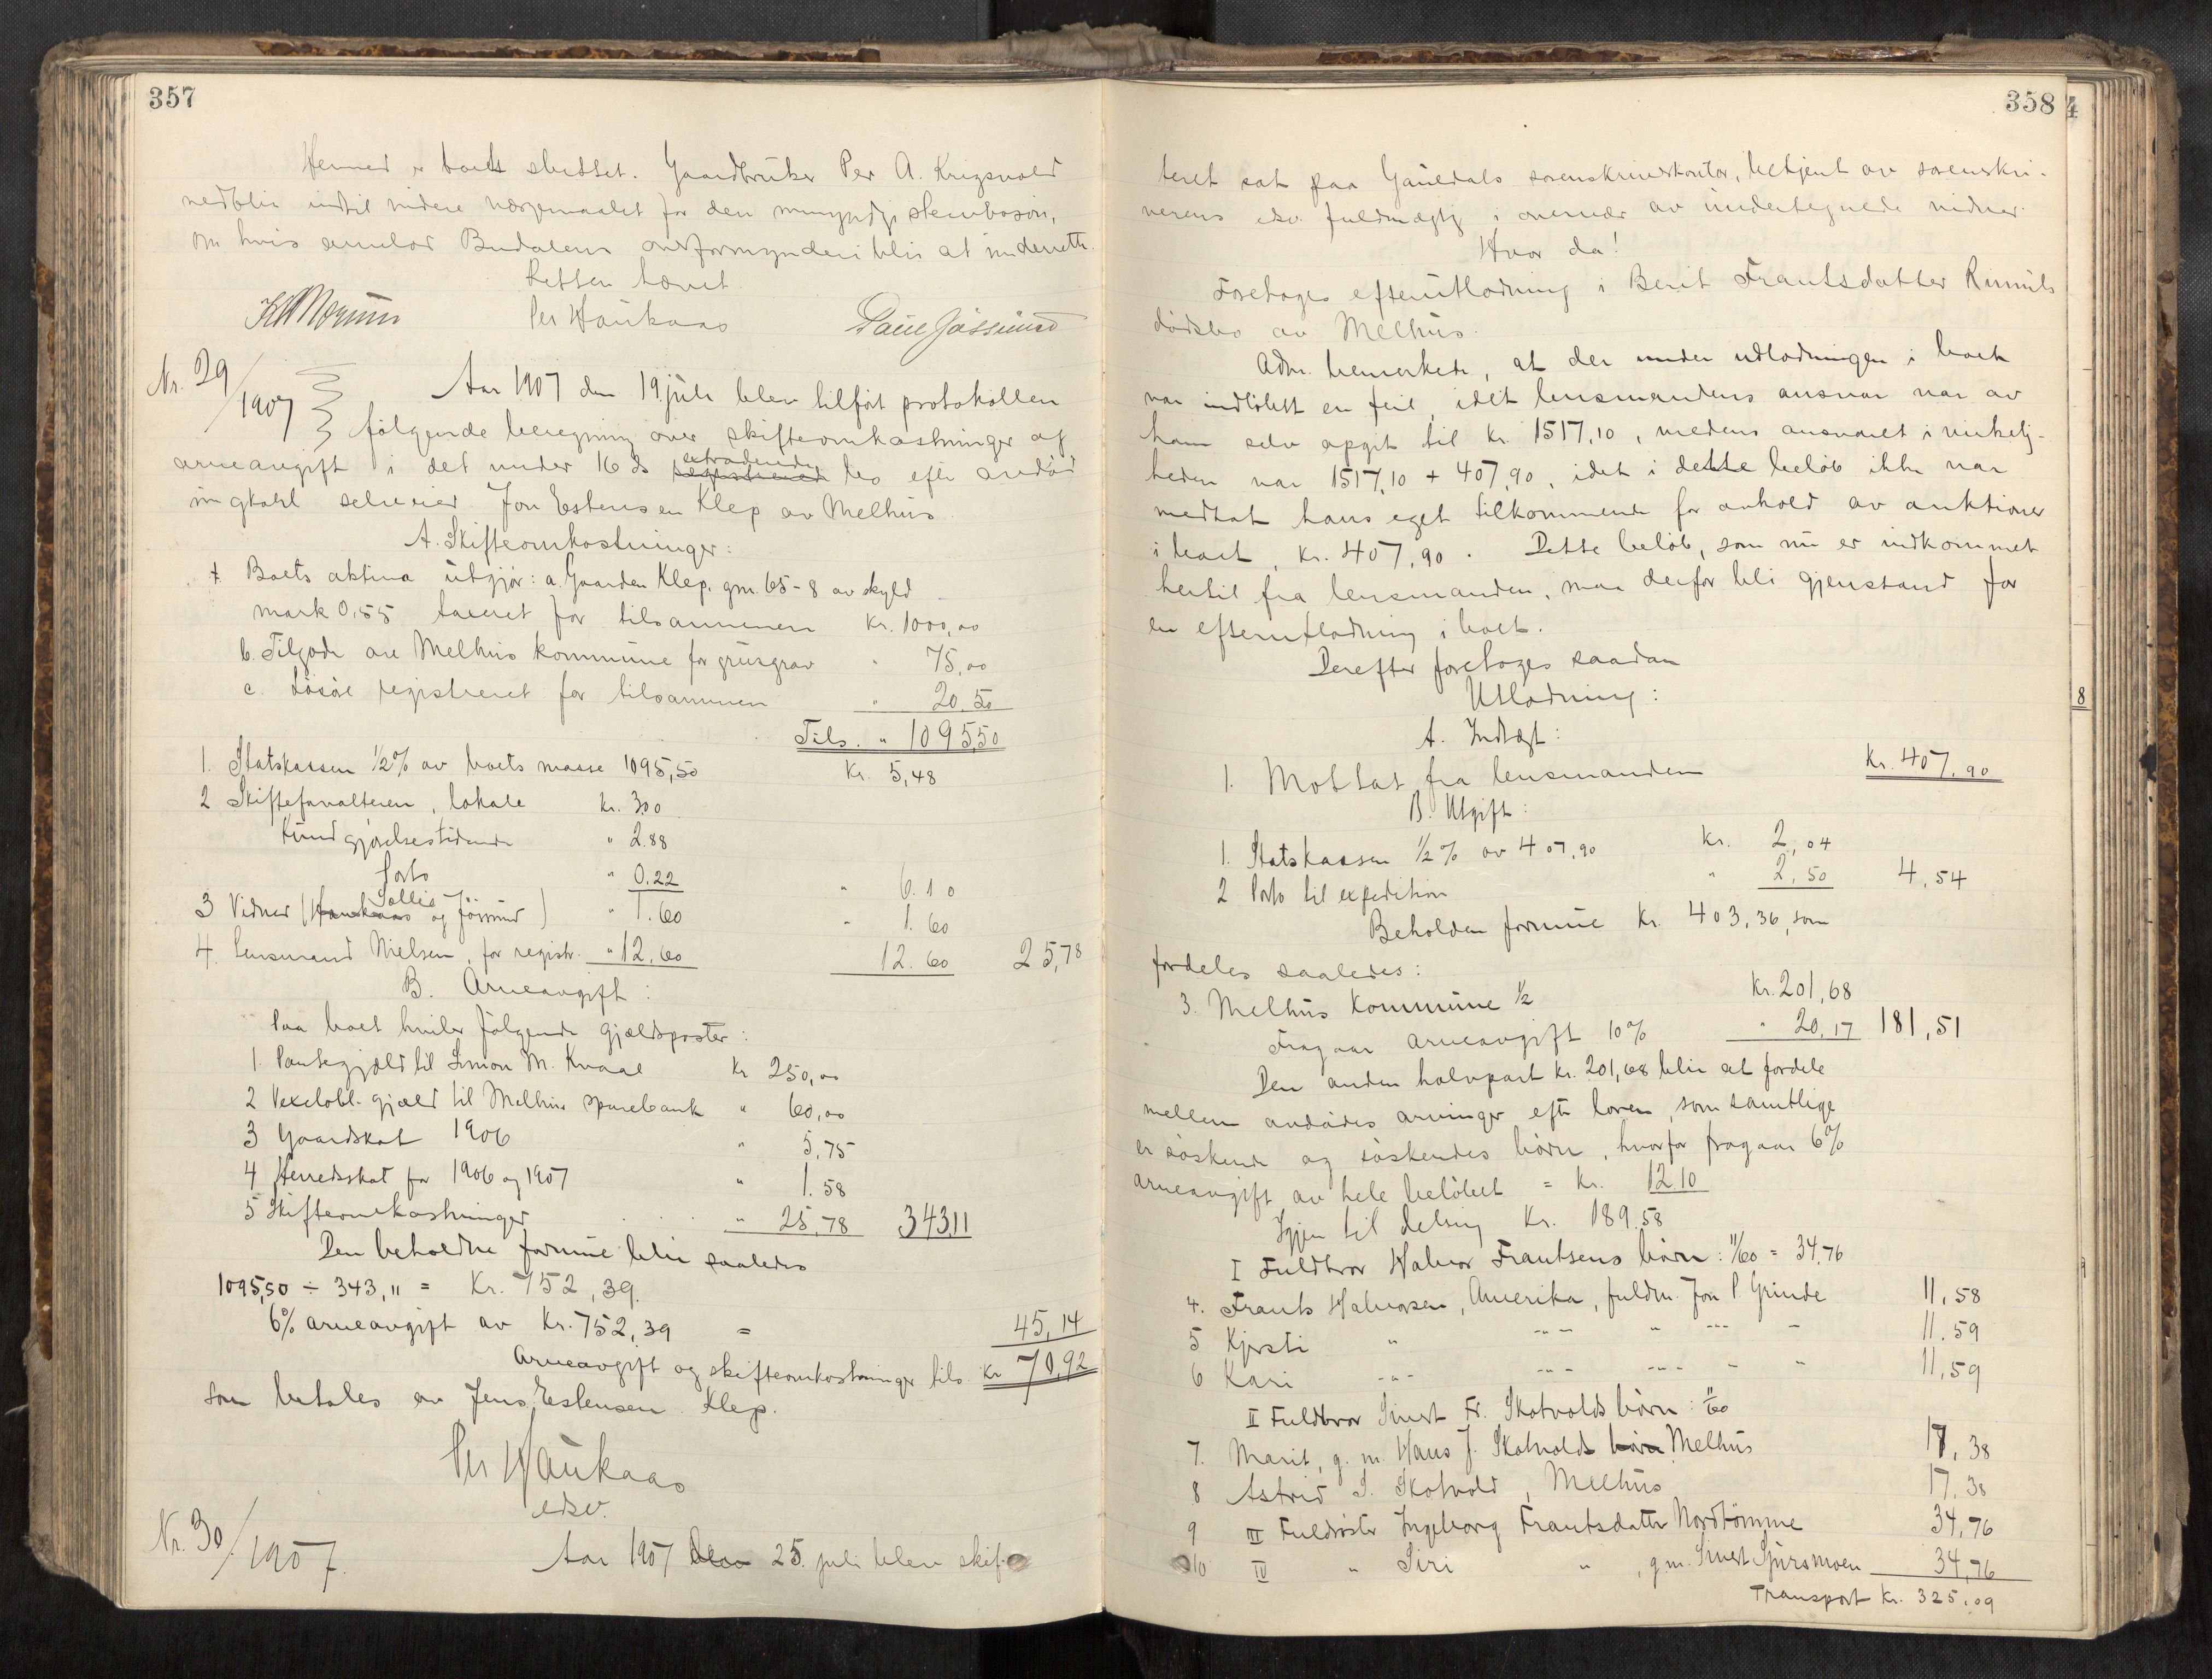 357
Hermed er boets sluttet. Gaardbruker Per A. Krigsvold
vedblir indtil videre værgemaalet for den umyndige stembosøn,
om hvis arvelod Budalens overformynderi blir at underrette.
Retten hævet
Per Haukaas
Nr. 29/1907
Aar 1907 den 19 juli blev tilført protokollen
følgende beregning over skifteomkostninger og
arveavgift i det under 16 ds extraderede bo efter avdød
ungkarl selveier Jon Estensen Klep av Melhus.
A. Skifteomkostninger:
Boets aktiva utgjør: a. Gaarden Klep, gm. 65-8 av skyld
mark 0,55 taxeret for tilsammen Kr. 1000,00
b. Tilgode ave Melhus kommune for grusgrav " 75,00
c. Løsøre registreret for tilsammen " 20,50
Tils. " 1095,50
1. Statskassen ½% av boets masse 1095,50 Kr. 5,48
2 Skifteforvalteren, lokale kr. 3,00
Kundgjørelsestidende " 2.88
Porto " 0,22 " 6.10
3 Vidner (Sollie og Jössund) " 1.60 " 1.60
4. Lensmand Nielsen, for registr. " 12,60 12.60 25,78
B. Arveavgift:
Paa boet hviler følgende gjældsposter:
1. Pantegjæld til Simon M. Kvaal Kr 250,00
2 Vexelobl. gjæld til Melhus sparebank " 60,00
3 Gaardskat 1906 " 5,75
4 Herredsskat for 1906 og 1907 " 1.58
5 Skifteomkostninger " 25,78 343,11
Den beholdne formue blir saaledes
1095,50 ÷ 343,11 = Kr. 752,39.
6% arveavgift av Kr. 752,39 = 45,14
Arveavgift og skifteomkostninger tils. Kr 70,92
som betales av Jens Estensen Klep.
Per Haukaas
edsv.
Nr. 30/1907.
Aar 1907 den 25. juli blev skif-
358
4
teret sat paa Gauldals sorenskriverkontor, betjent av sorenskri-
verens edsv. fuldmægtig i overvær av undertegnede vidner.
Hvor da!
Foretoges efterutlodning i Berit Frantsdatter Rimuls
dødsbo av Melhus.
Adm. bemerkede, at der under udlodningen i boet
var indløbet en feil, idet lensmandens ansvar var av
ham selv opgit til kr. 1517,10, medens ansvaret i virkelig-
heden var 1517,10 + 407,90, idet i dette beløb ikke var
medtat hans eget tilkommende for avhold av auktioner
i boet, kr. 407,90. Dette beløb, som nu er indkommet
hertil fra lensmanden, maa derfor bli gjenstand for
en efterutlodning i boet.
Derefter foretoges saadan
Utlodning:
8
A. Indtægt:
1. Mottat fra lensmanden Kr. 407,90
B. Utgift:
1. Statskassen ½% av 407,90 Kr. 2,04
2 Porto til expedition " 2,50 4,54
Beholden formue Kr. 403,36, som
fordeles saaledes:
3. Melhus kommune ½ Kr. 201,68
Fragaar arveavgift 10% " 20,17 181,51
Den anden halvpart Kr. 201,68 blir at fordele
mellem avdødes arvinger efter loven, som samtlige
er søskende og søskendes børn, hvorfor fragaar 6%
arveavgift av hele beløbet = Kr. 12.10
Igjen til deling Kr. 189.58
I Fuldbror Halvor Frantsens børn: 11/60 = 34,76
4. Frants Halvorsen, Amerika, fuldm. Jon P. Grinde 11,58
5 Kjersti " -"- " -"- - 11.59
6 Kari -"- -"- -"- " " 11,59
II Fuldbror Sivert Fr. Skotvolds børn: 11/60
7. Marit, g. m. Hans J. Skotvold børn Melhus 17,38
8 Astrid S. Skotvold, Melhus 17.38
9 III Fuldsøster Ingeborg Frantsdatter Nordtømme 34,76
10 IV " Siri " , g.m. Sivert Sjursmoen 34,76
Transport Kr. 325,09